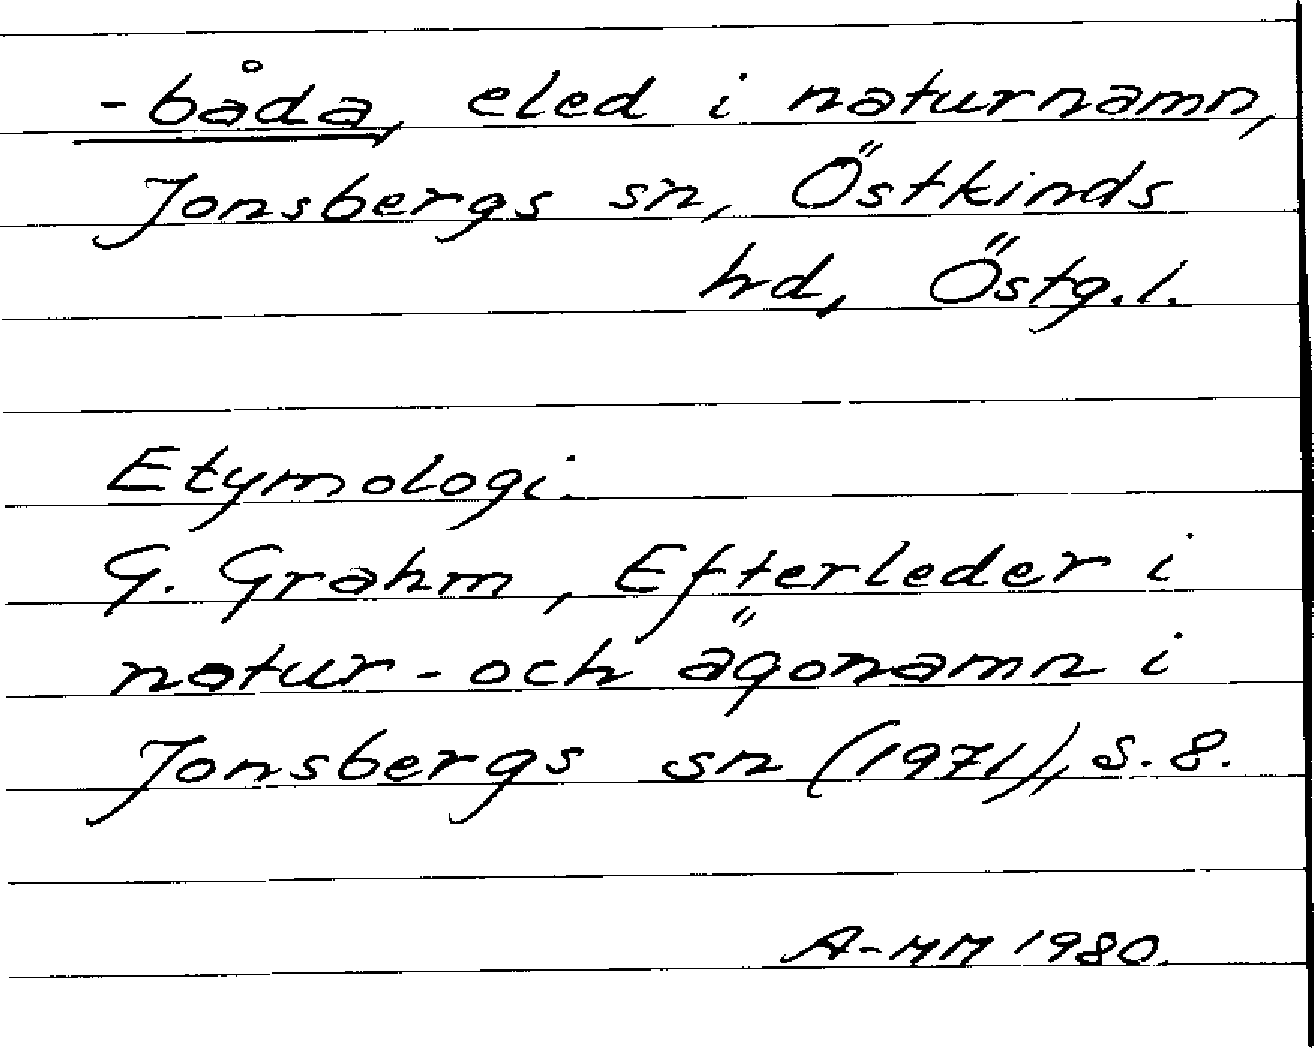 -båda, eled i naturnamn,
Jonsbergs sn, Östkinds
hd, Östg.l.
Etymologi.
G. Grahm, Efterleder i
natur- och ägonamn i
Jonsbergs sn (1971), s. 8.
A-MM 1980.